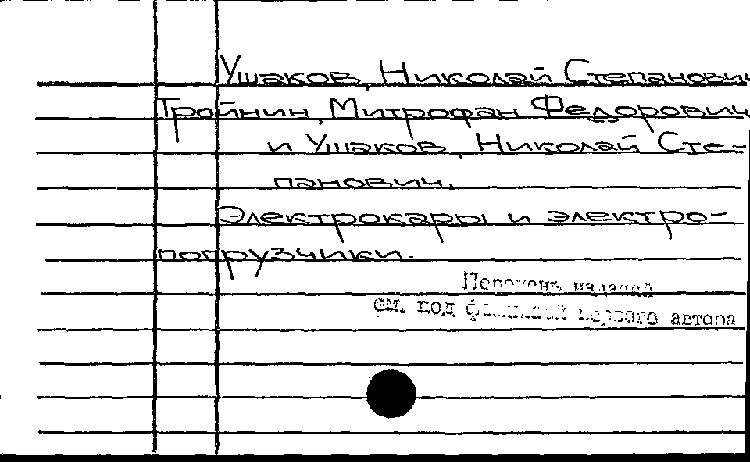 Ушаков, Николай Степанович
Тройнин, Митрофан Федорович
и Ушаков, Николай Сте-
панович.
Электрокары и электро-
погрузчики.
Перечень изданий
см. под фамилией первого автора